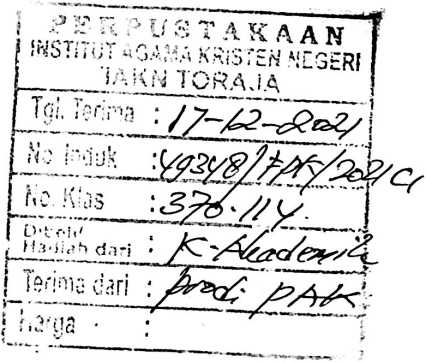 PERPUSTAKAAN
INSTITUT AGAMA KRISTEN NEGERI
IAKN TORAJA
Tgl. Terima : 17-12-2021
No Induk : 49348/FPK/2021 C1
No. Klas : 370.114
Dibeli/
Hadiah dari : K-Akademik
Terima dari : prodi PAK
Harga :